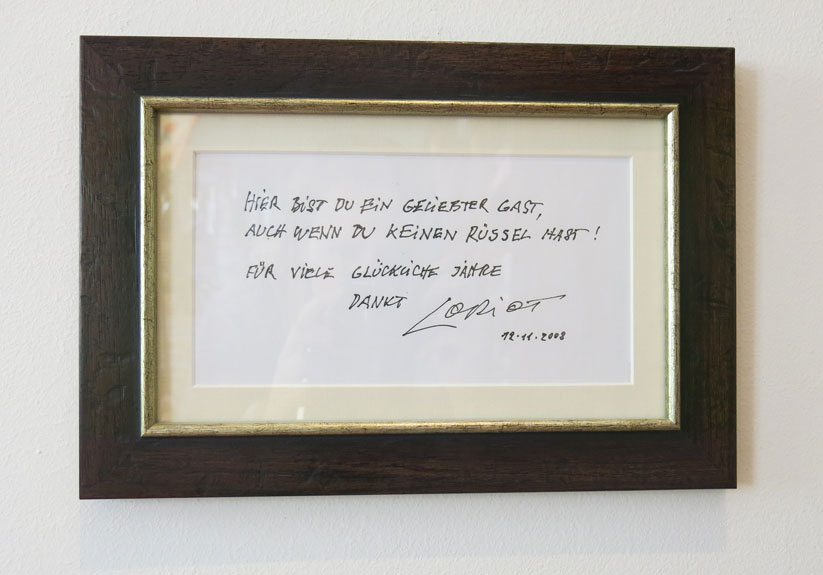 HIER BIST DU EIN GELIEBTER GAST,
AUCH WENN DU KEINEN RÜSSEL HAST!
FÜR VIELE GLÜCKLICHE JAHRE
DANKT LORIOT
12.11.2008